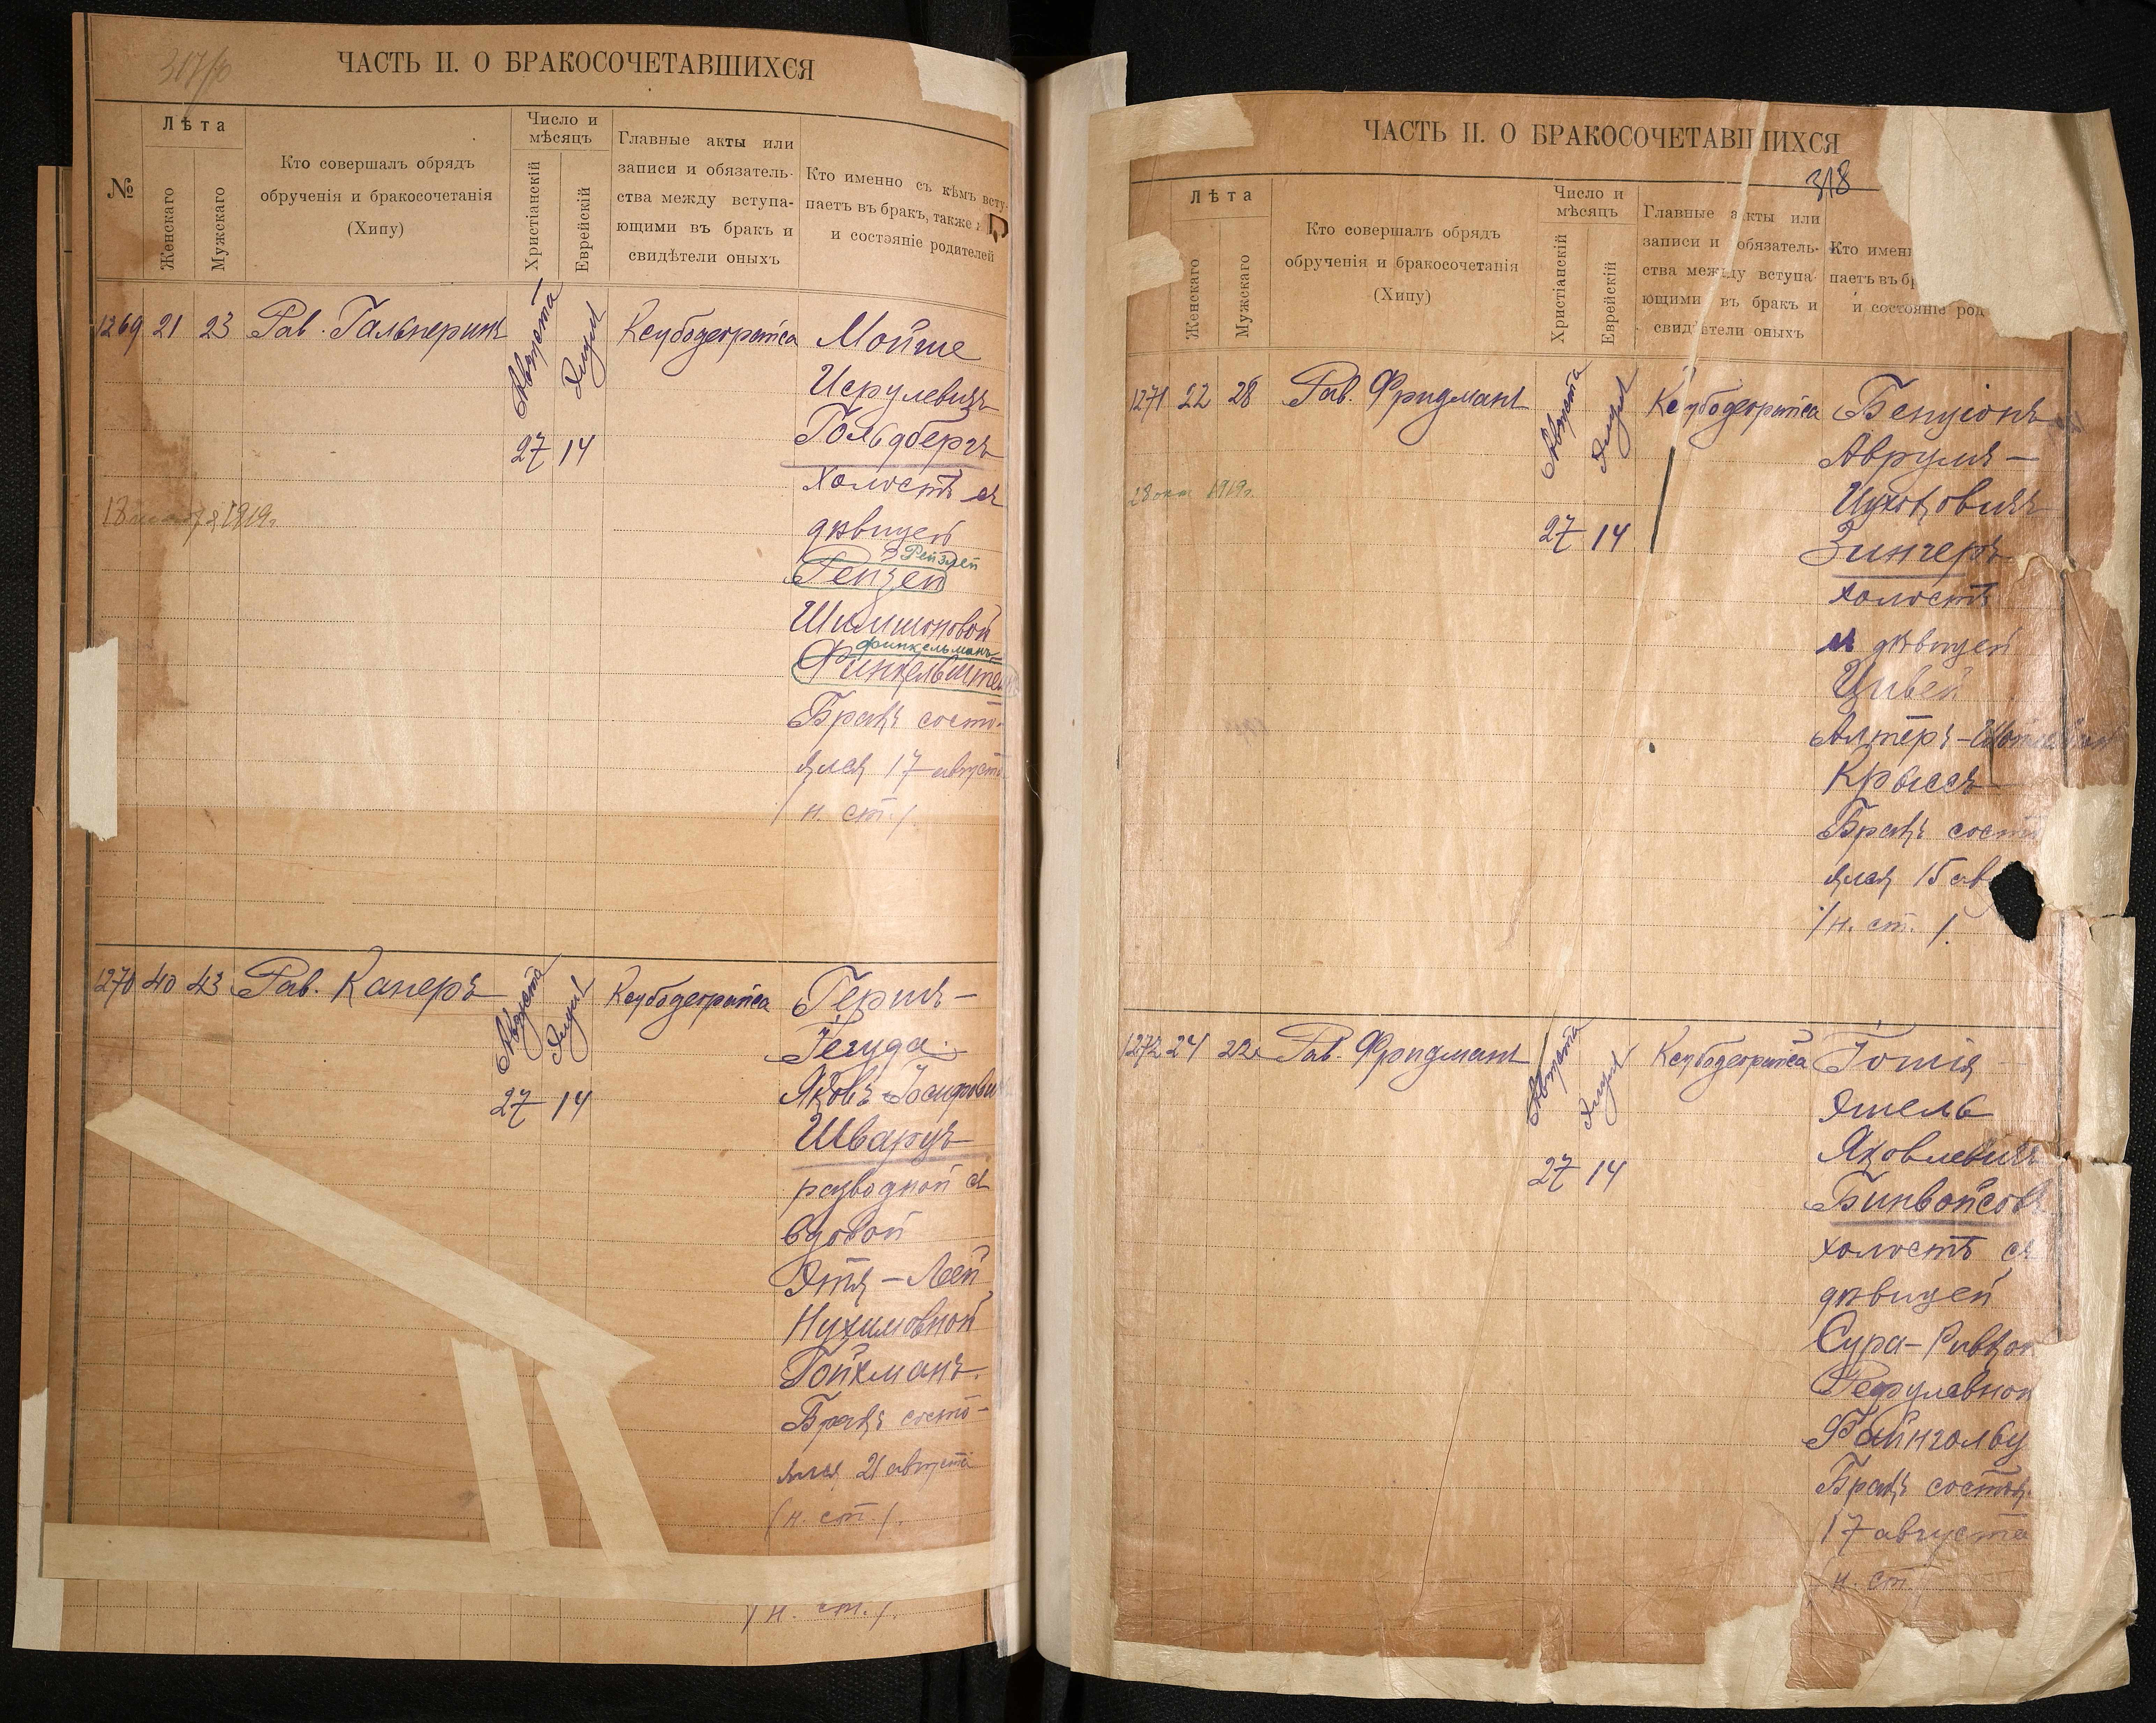 317/10
ЧАСТЬ II. О БРАКОСОЧЕТАВШИХСЯ
№
Лѣта
Женскаго
Мужскаго
Кто совершалъ обрядъ
обрученія и бракосочетанія
(Хипу)
Число и
мѣсяцъ
Христіанскій
Еврейскій
Главные акты или
записи и обязатель-
ства между вступа-
ющими въ бракъ и
свидѣтели оныхъ
Кто именно съ кѣмъ всту-
паетъ въ бракъ, также
и состояніе родителей
1269 21 23 Рав. Гальперинъ
Августа Элула
27 14
Ксубодеорайса
Мойше
Исрулевичъ
Гольдбергъ
холостъ съ
дѣвицей
Рейзлей
Рейзей
Шимшоновой
Финкельманъ
Финкельштей
Бракъ состо-
ялся 17 августа
/н. ст./
1919г.
1270 40 43 Рав. Канеръ
Августа Элула
27 14
Ксубодеорайса
Герш-
Іегуда-
Яковъ Іосифови
Шварцъ
разводной съ
вдовой
Этя-Лей
Нухимовной
Гойхманъ.
Бракъ состо-
ялся 21 августа
/н. ст./.
/н. ст./.
ЧАСТЬ II. О БРАКОСОЧЕТАВШИХСЯ
318
Лѣта
Женскаго
Мужскаго
Кто совершалъ обрядъ
обрученія и бракосочетанія
(Хипу)
Число и
мѣсяцъ
Христіанскій
Еврейскій
Главные акты или
записи и обязатель-
ства между вступа-
ющими въ бракъ и
свидѣтели оныхъ
Кто имен
паетъ въ бр
и состояніе род
1271 22 28 Рав. Фридманъ
Августа Элула
27 14
Ксубодеорайса
Бенціонъ
Аврумъ-
Ицковичъ
Зингеръ
холостъ
съ дѣвицей
Цивей
Алтеръ-
Крыссъ
Бракъ состо
ялся 15 ав
/н. ст./.
28 окт 1919г.
1272 24 22 Рав. Фридманъ
Августа Элула
27 14
Ксубодеорайса
Іошія
Яковлевичъ
Бинвойсовъ
холостъ съ
дѣвицей
Сура-Ривкой
Файнгольц
Бракъ состоя
17 августа
/н. ст.